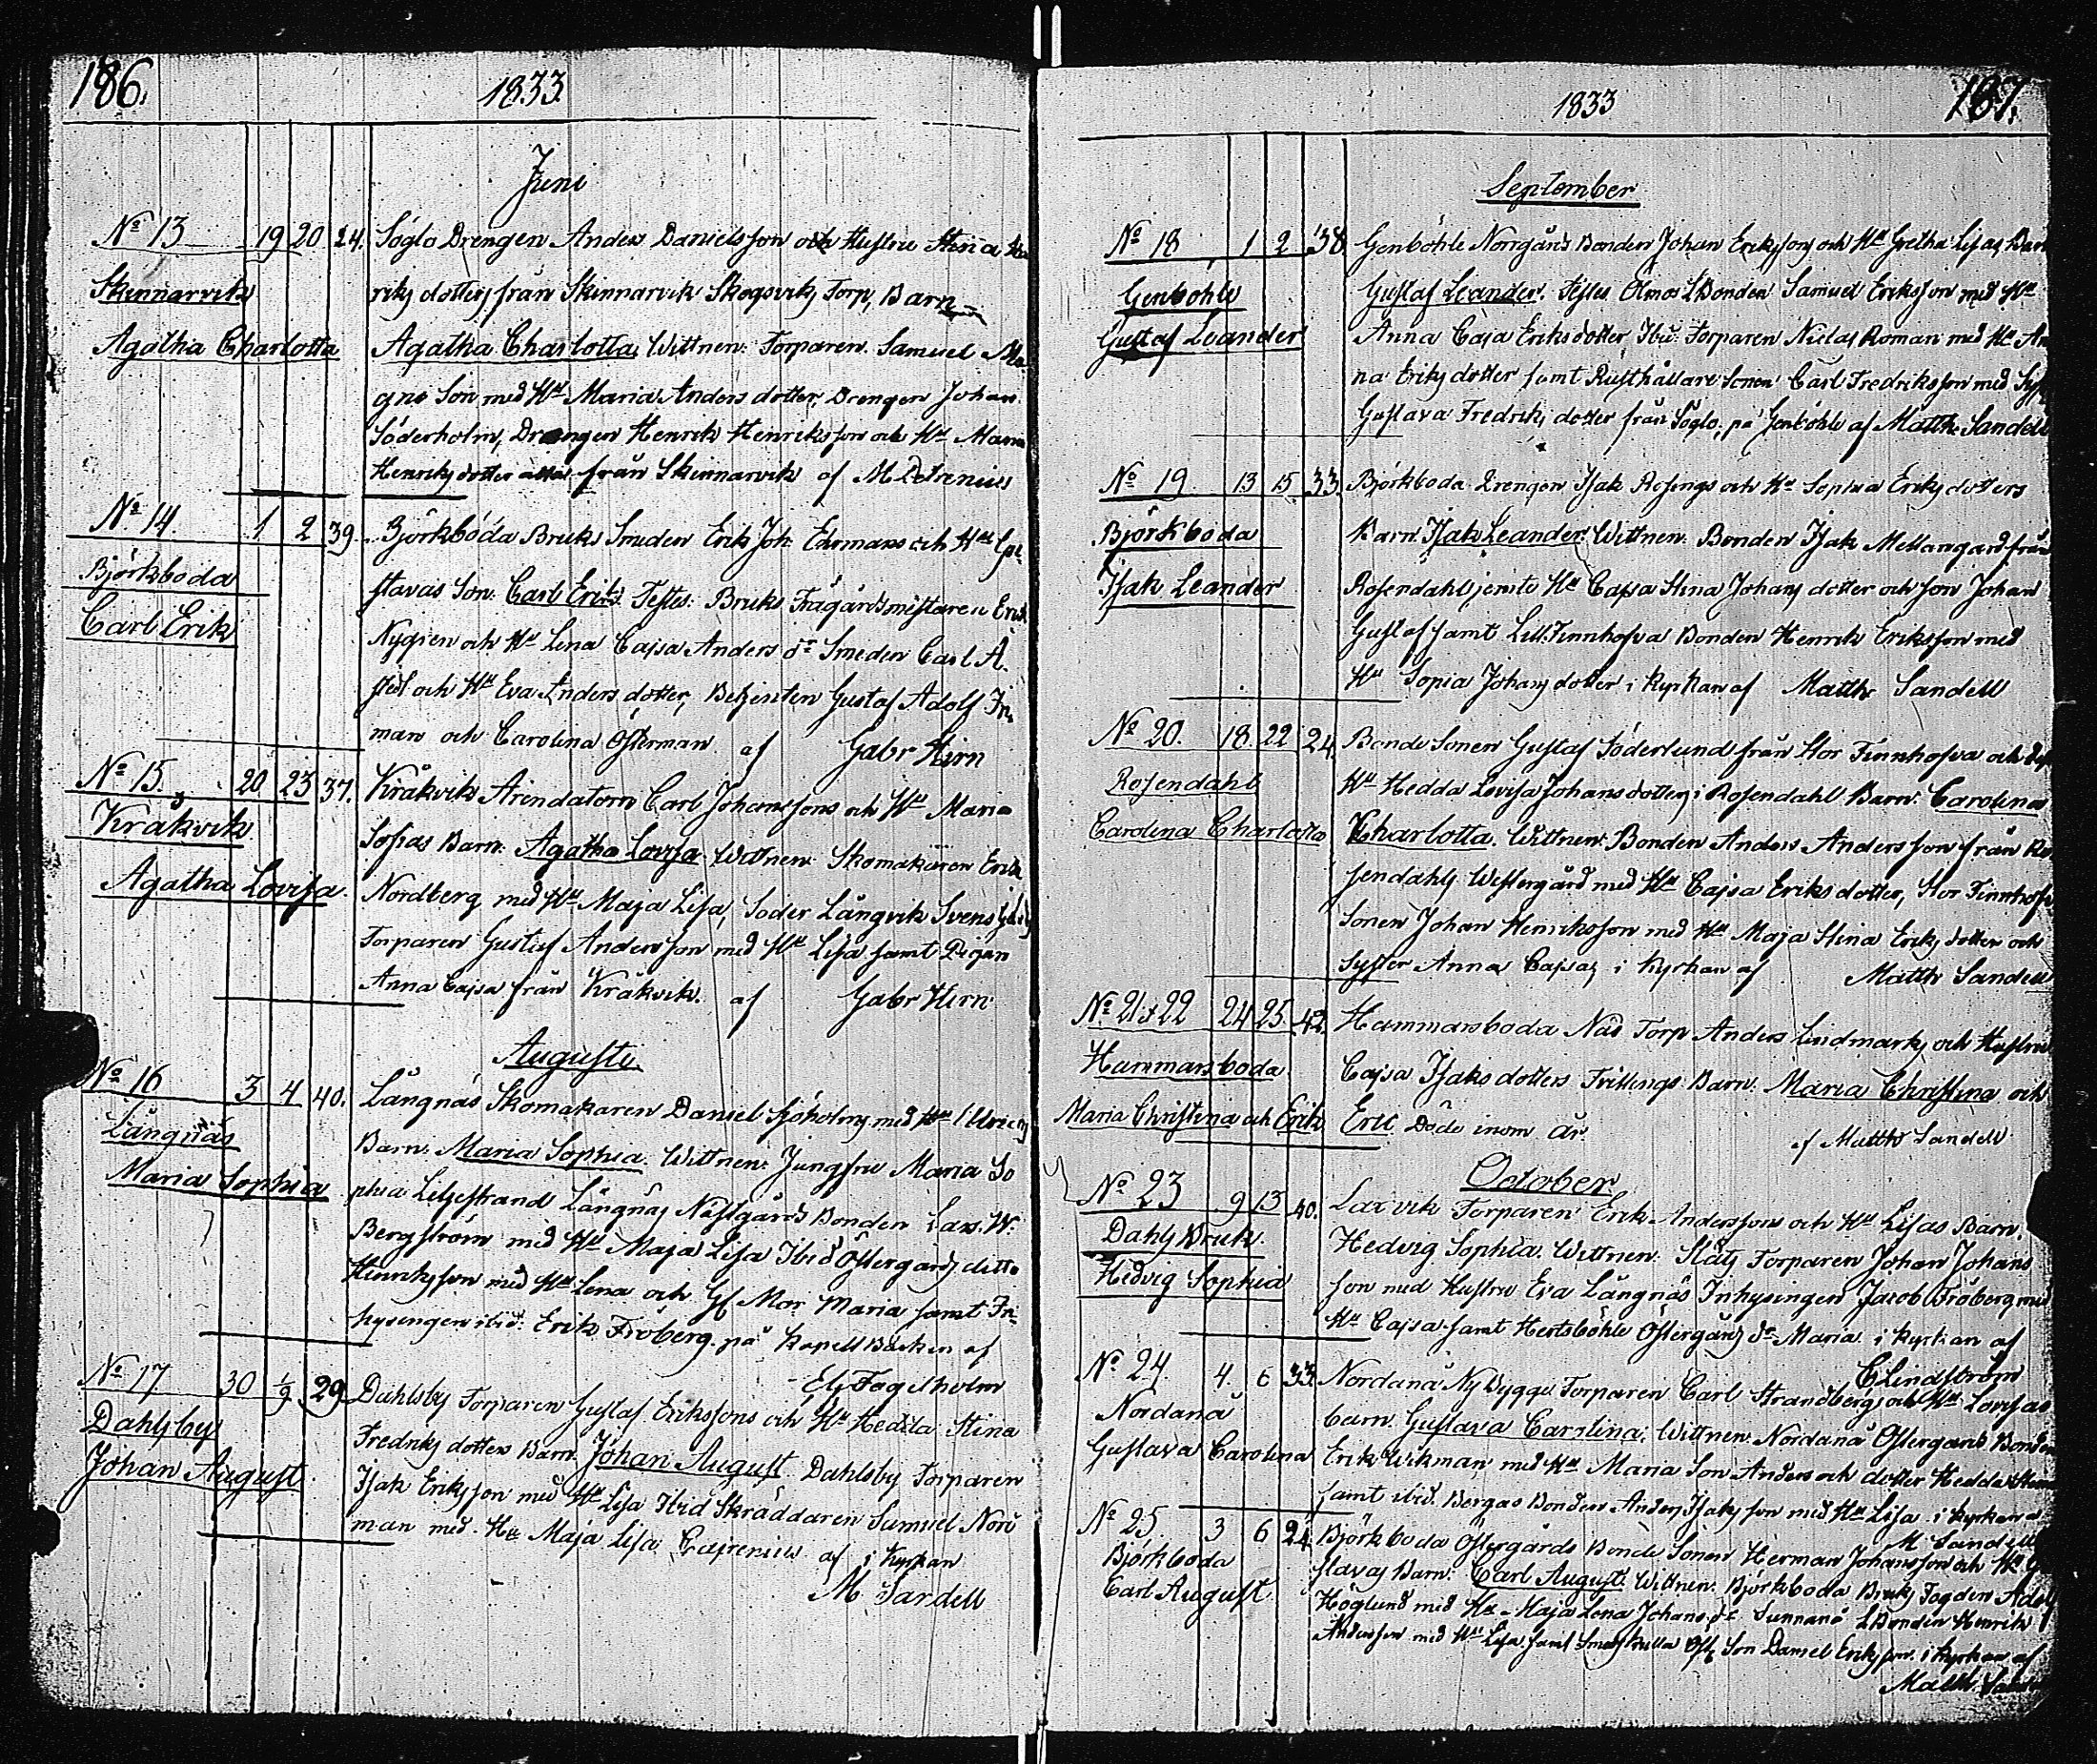 186.
1833.
Juni
No 13 19 20 24. Söglo Drengen Anders Danielsson och Hustru Stina
Skinnarvik
riks dotters från Skinnarvik Skogsviks Torp, Barn
Agatha Charlotta Agatha Charlotta Wittnen: Torparen Samuel Ma
gns Son med Hu Maria Anders dotter, Drengen Johan
Söderholm, Drengen Henrik Henriksson och Hu Maria
Henriks dotter från Skinnarvik af M Petrenius
No 14. 1 2 39. Björkboda Bruks Smeden Erik Joh och Hu Gu
Björkboda
stavas Son. Carl Erik. Testes: Bruks Trägårdsmästaren Erik
Carl Erik
Nygren och Hu Lena Cajsa Anders dr Smeden Carl A.
stedt och Hu Eva Anders dotter, Betjenten Gustaf Adolf
man och Carolina Österman. af Gabr Hirn
No 15. 20 23 37. Kråkvik Arendatorn Carl Johanssons och Hu Maria
Kråkvik
Sofias Barn. Agatha Lovisa Wittnen Skomakaren Erik
Agatha Lovisa.
Nordberg med Hu Maja Lisa, Söder Långvik Svens
Torparen Gustaf Andersson med Hu Lisa samt Pigan
Anna Cajsa från Kråkvik. af Gabr Hirn
Augusti
No 16 3 4 40. Långnäs Skomakaren Daniel Sjöholms med Hu Ulrics
Långnäs
Barn. Maria Sophia. Wittnen: Jungfru Maria So
Maria Sophia
phia Liljestrand Långnäs Nästgårds Bonden Lars W.
Bergström med Hu Maja Lisa Ibid Östergards ditto
Henriksson med Hu Lena och Gl Mor Maria samt In
hysingen ibid. Erik Fröberg. på Kapell Backen af
Elg Fagelholm
No 17 30 1/9 29 Dahlsby Torparen Gustaf Erikssons och Hu Hedda Stina
Dahlsby
Fredriks dotters Barn. Johan August Dahlsby Torparen
Johan August
Isak Eriksson med Hu Lisa Ibid Skräddaren Samuel Nor
man med Hu Maja Lisa Cajrenius af i Kyrkan
M Sandell
1833
187.
September
No 18 1 2 38 Genböhle Norrgårds Bonden Johan Erikssons och Hu Gretha Lisas Barn
Genböhle
Gustaf Leander. Testes Ölmos LBonden Samuel Eriksson med Hu
Gustaf Leander
Anna Cajsa Eriksdotter, Ibid: Torparen Niclas Roman med Hu An
na Eriks dotter samt Rusthållare Sonen Carl Fredriksson med
Gustava Fredriks dotter från Söglo, på Genböhle af Matth Sandell
No 19 13 15 33. Björkboda Drengen Isak Rosings och Hu Sophia Eriks dotters
Björkboda
Barn Isak Leander Wittnen. Bonden Isak Mellangard från
Isak Leander
Rosendahl jemte Hu Cajsa Stina Johans dotter och son Johan
Gustaf samt Lill.Finnhofva Bonden Henrik Eriksson med
Hu Sopia Johans dotter i kyrkan af Matth Sandell
No 20. 18 22 24. Bonde Sonen Gustaf Söderlunds från Stor Finnhofva och dess
Rosendahl
Hu Hedda Lovisa Johans dotters i Rosendahl Barn. Carolina
Carolina Charlotta Charlotta. Wittnen: Bonden Anders Andersson från Ro
sendahls Westergård med Hu Cajsa Eriks dotter, Stor Finnhofva
Sonen Johan Henriksson med Hu Maja Stina Eriks dotter och
Syster Anna Cajsas i Kyrkan af Matth Sandell
No 21 & 22 24 25 42. Hammarsboda Näs Torp Anders Lindmarks och Hustru
Hammarsboda
Cajsa Isaks dotters Tvillings Barn. Maria Christina och
Maria Christina och Erik Eric Döde inom år. af Matth Sandell
October
No 23 9 13 40. Laxvik Torparen Erik Anderssons och Hu Lisas Barn.
Dahls Bruk.
Hedvig Sophia. Wittnen: Släts Torparen Johan Johans
Hedvig Sophia
son med Hustru Eva Långnäs Inhysingen Jacob Fröberg med
Hu Cajsa samt Hertsböhle Östergårds dr Maria. i kyrkan af
C Lindström
No 24. 4. 6 33. Nordanå Nybygge Torparen Carl Strandbergs och Hu Lovisas
Nordanå
barn Gustava Carolina, Wittnen. Nordanå Östergards Bonden
Gustava Carolina Erik Wikman med Hu Maria Son Anders och dotter Hedda Stina
samt ibid. Bergas Bonden Anders Isaks son med Hu Lisa i kyrkan
M Sandell
No 25 3 6 24. Björkboda Östergårds Bonde Sonen Herman Johansson och Hu Gu
Björkboda
stavas Barn: Carl August. Wittnen. Björkboda Bruks Fogden Adolf
Carl August
Höglund med Hu Maja Lena Johans dr Sunnanå LBonden Henrik
Andersson med Hu Lisa samt Son Daniel Eriksson i Kyrkan af
Matth